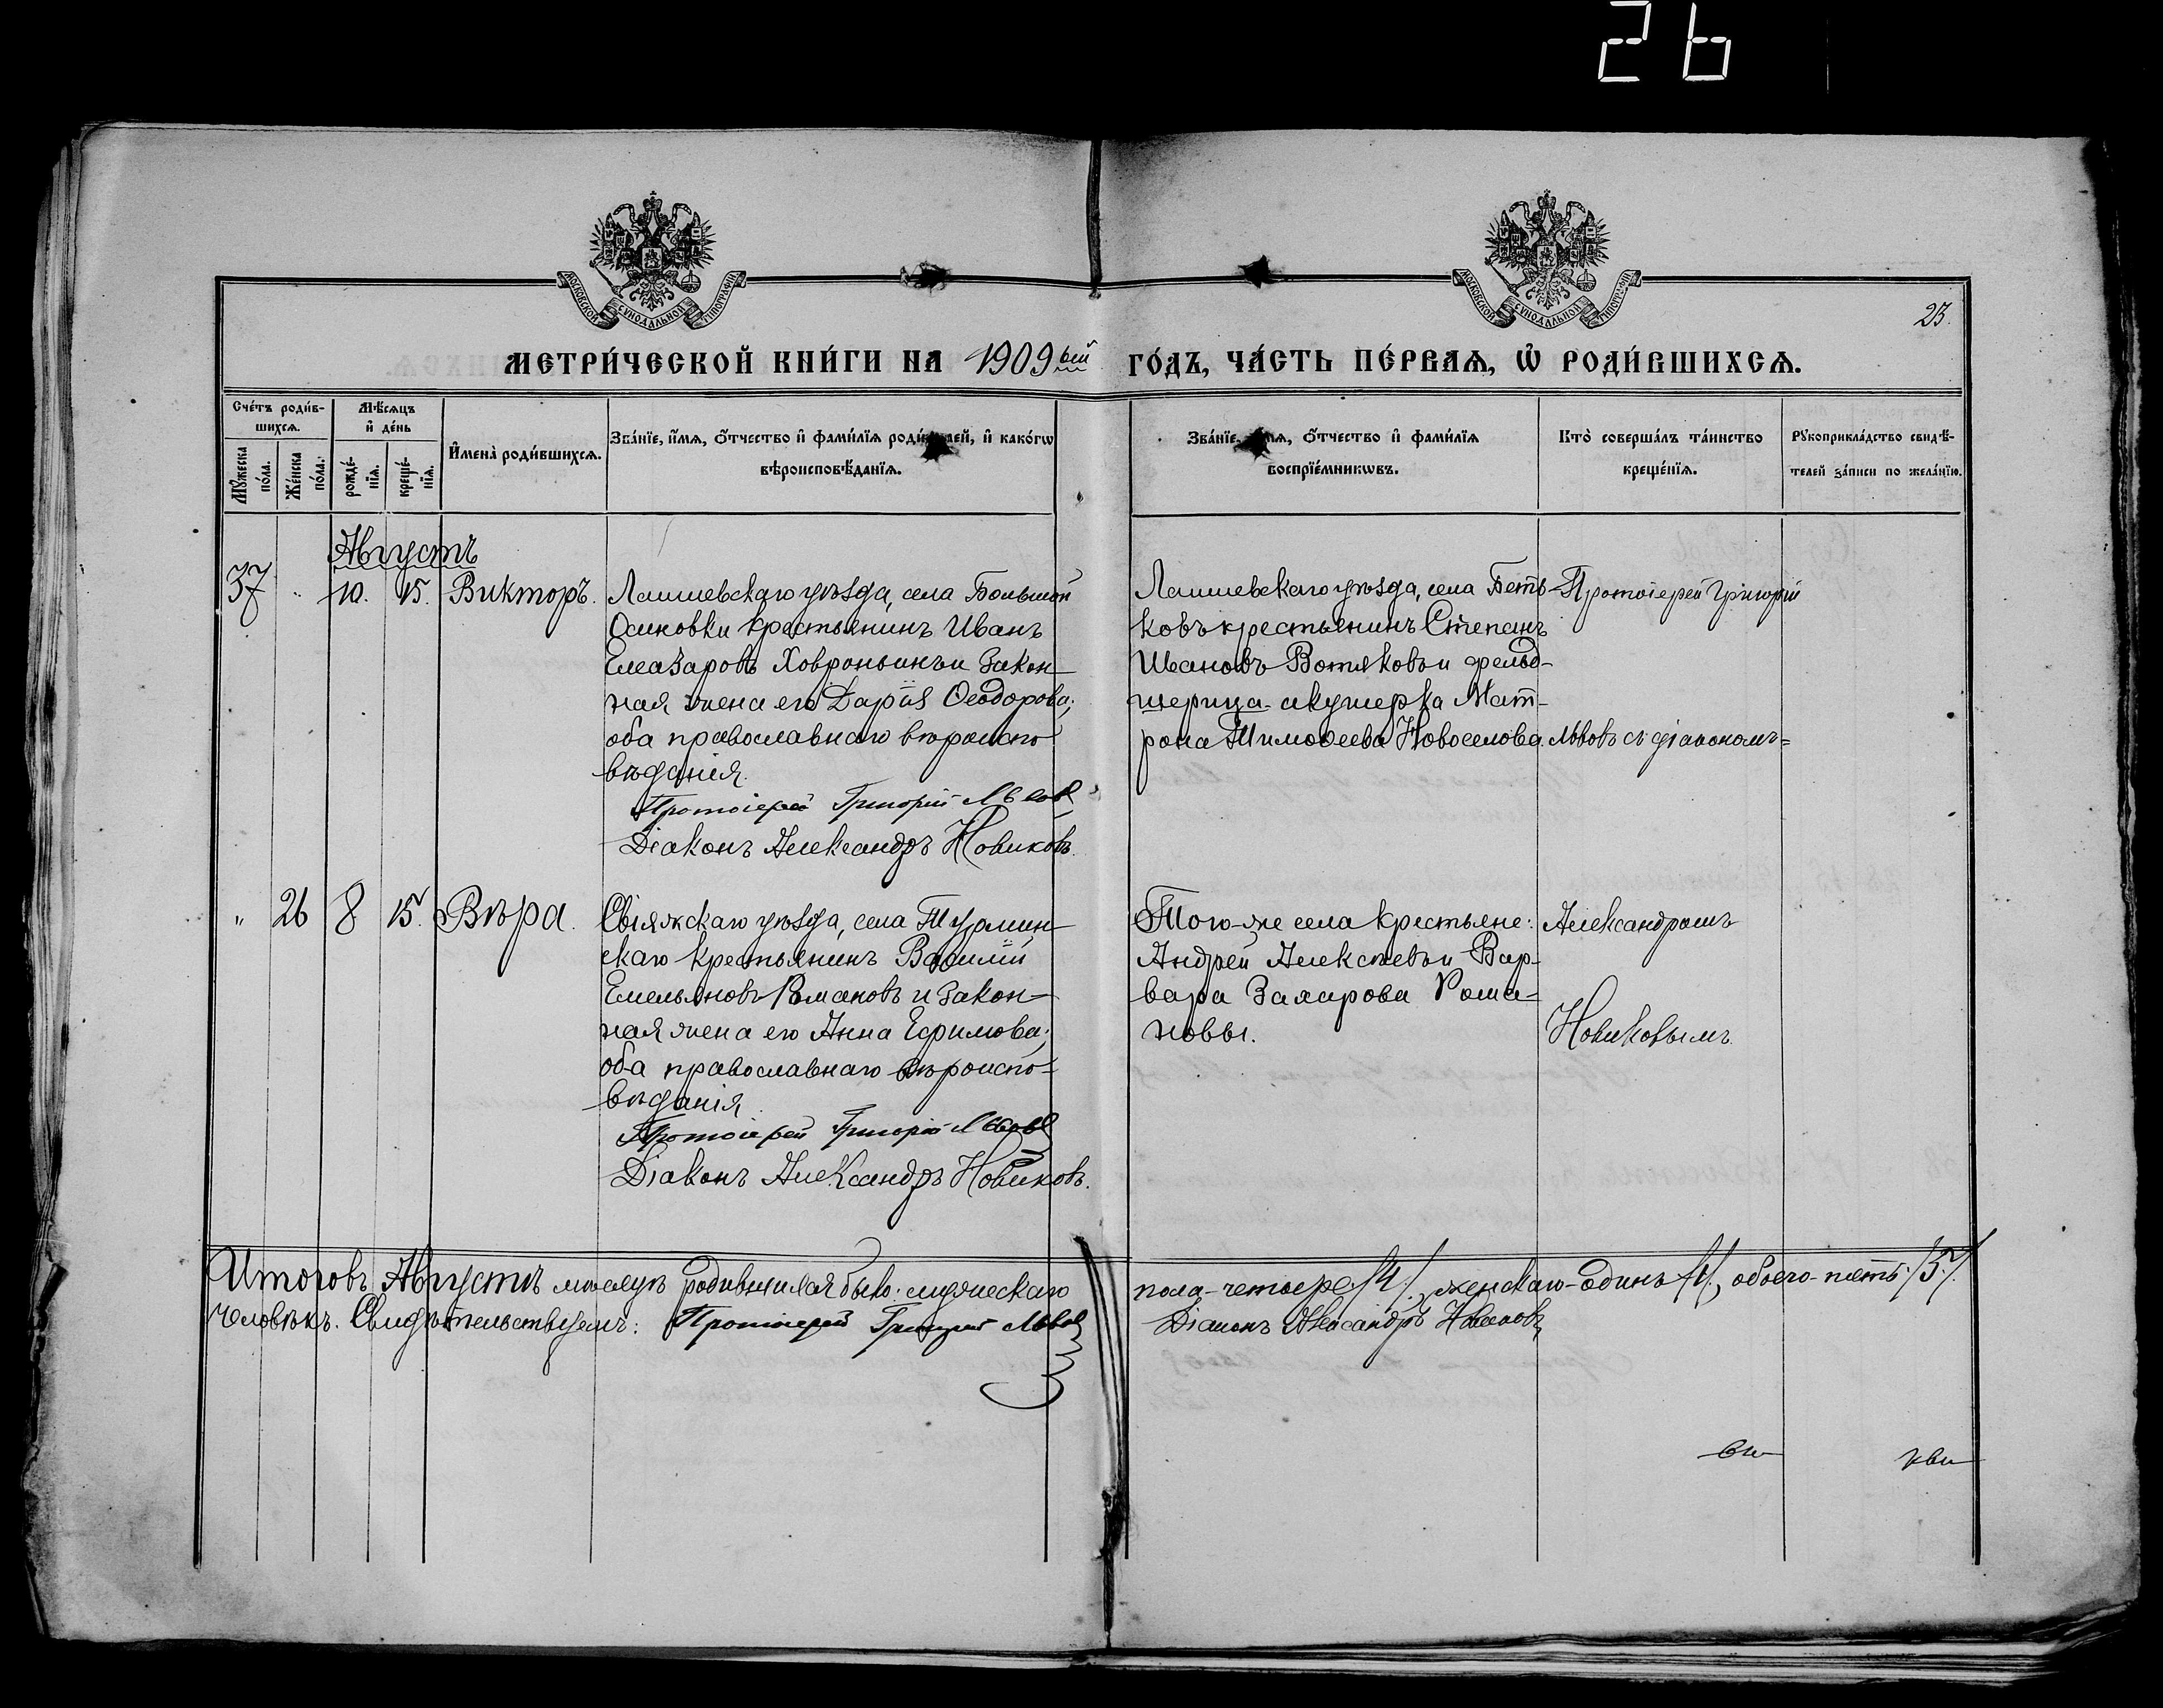 26
МОСКОВСКОЙ СѴНОДАЛЬНОЙ ТИПОГРАФІИ
МОСКОВСКОЙ СѴНОДАЛЬНОЙ ТИПОГРАФІИ
23.
МЕТРИ́ЧЕСКОЙ КНИ́ГИ НА 1909ый ГО́ДЪ, ЧА́СТЬ ПЕ́РВАѦ, Ѡ҆ РОДИ́ВШИХСѦ.
Сче́тъ роди́в-
шихсѧ.
Мѣ́сѧцъ
и҆ де́нь
Мꙋ́жеска
по́ла.
Же́нска
по́ла.
рожде́-
нїѧ.
креще́-
нїѧ.
И҆мена̀ роди́вшихсѧ.
Зва́нїе, и҆́мѧ, ѻ҆́тчество и҆ фами́лїѧ роди́телей, и҆ како́гѡ
вѣроисповѣ́данїѧ.
Зва́нїе, и҆́мѧ, ѻ҆́тчество и҆ фами́лїѧ
воспрїе́мникѡвъ.
Кто̀ соверша́лъ та́инство
креще́нїѧ.
Рꙋкоприкла́дство свидѣ́-
телей за́писи по жела́нїю.
Августъ
37 " 10. 15. Викторъ.
Лаишевскаго уѣзда, села Большой
Осиновки крестьянинъ Иванъ
Елеазаровъ Ховроньинъ и закон-
ная жена его Дарія Ѳеодорова;
оба православнаго вѣроиспо-
вѣданія.
Протоіерей Григорій Львовъ
Діаконъ Александръ Новиковъ.
Лаишевскаго уѣзда, села Беть-
ковъ крестьянинъ Степанъ
Ивановъ Вотяковъ и фельд-
шерица-акушерка Мат-
рона Тимоѳеева Новоселова.
Протоіерей Григорій
Львовъ съ діакономъ=
" 26 8 15. Вѣра.
Свіяжскаго уѣзда, села Турмин-
скаго крестьянинъ Василій
Емельяновъ Романовъ и закон-
ная жена его Анна Ефимова;
оба православнаго вѣроиспо-
вѣданія
Протоіерей Григорій Львовъ
Діаконъ Александръ Новиковъ.
Того-же села крестьяне:
Андрей Алексѣевъ и Вар-
вара Захарова Рома-
новы.
Александромъ
Новиковымъ.
Итого въ Августѣ мѣсяцѣ родившихся было: мужескаго пола-четыре /4/, женскаго-одинъ /1/, обоего-пять /5/.
человѣкъ. Свидѣтельствуемъ: Протоіерей Григорій Львовъ Діаконъ Александръ Новиковъ